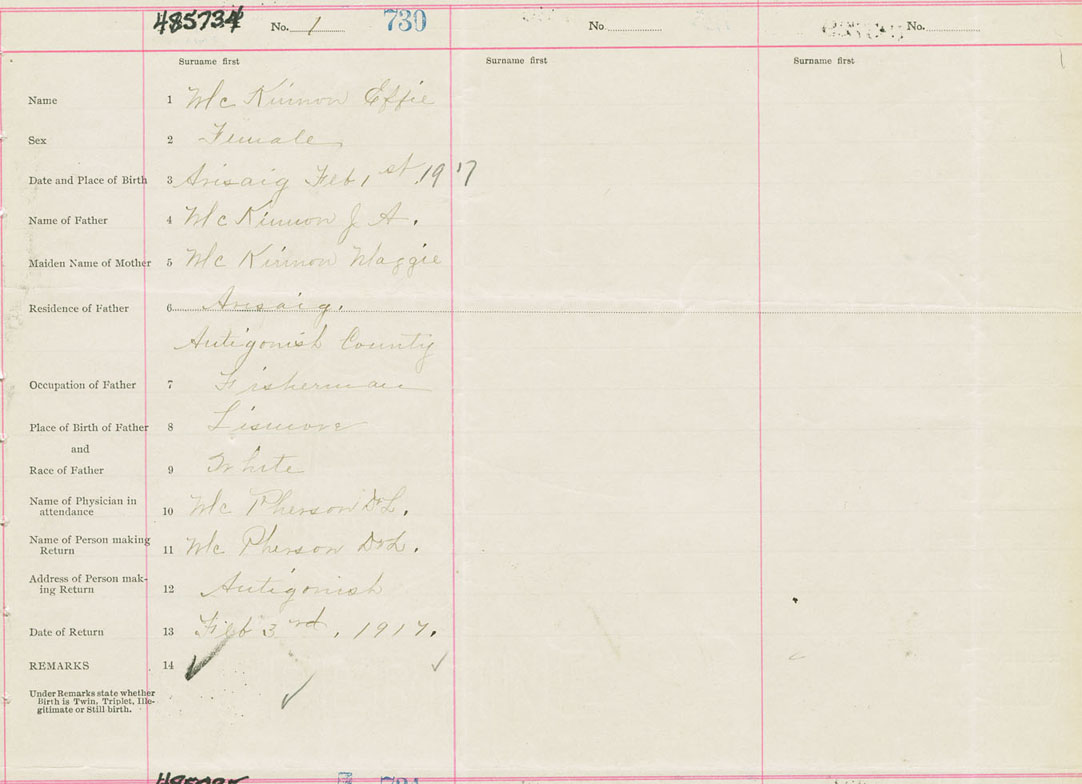 485734 No. 1 730 No. No.
Surname first Surname first Surname first
Name 1 Mc Kinnon Effie
Sex 2 Female
Date and Place of Birth 3 Arisaig Feb 1st 1917
Name of Father 4 Mc Kinnon J A.
Maiden Name of Mother 5 Mc Kinnon Maggie
Residence of Father 6 Arisaig.
Antigonish County
Occupation of Father 7 Fisherman
Place of Birth of Father 8 Lismore
and
Race of Father 9 White
Name of Physician in
attendance 10 Mc Pherson Dr L.
Name of Person making
Return 11 Mc Pherson Dr L.
Address of Person mak-
ing Return 12 Antigonish
Date of Return 13 Feb 3rd, 1917.
REMARKS 14
Under Remarks state whether
Birth is Twin, Triplet, Ille-
gitimate or Still birth.